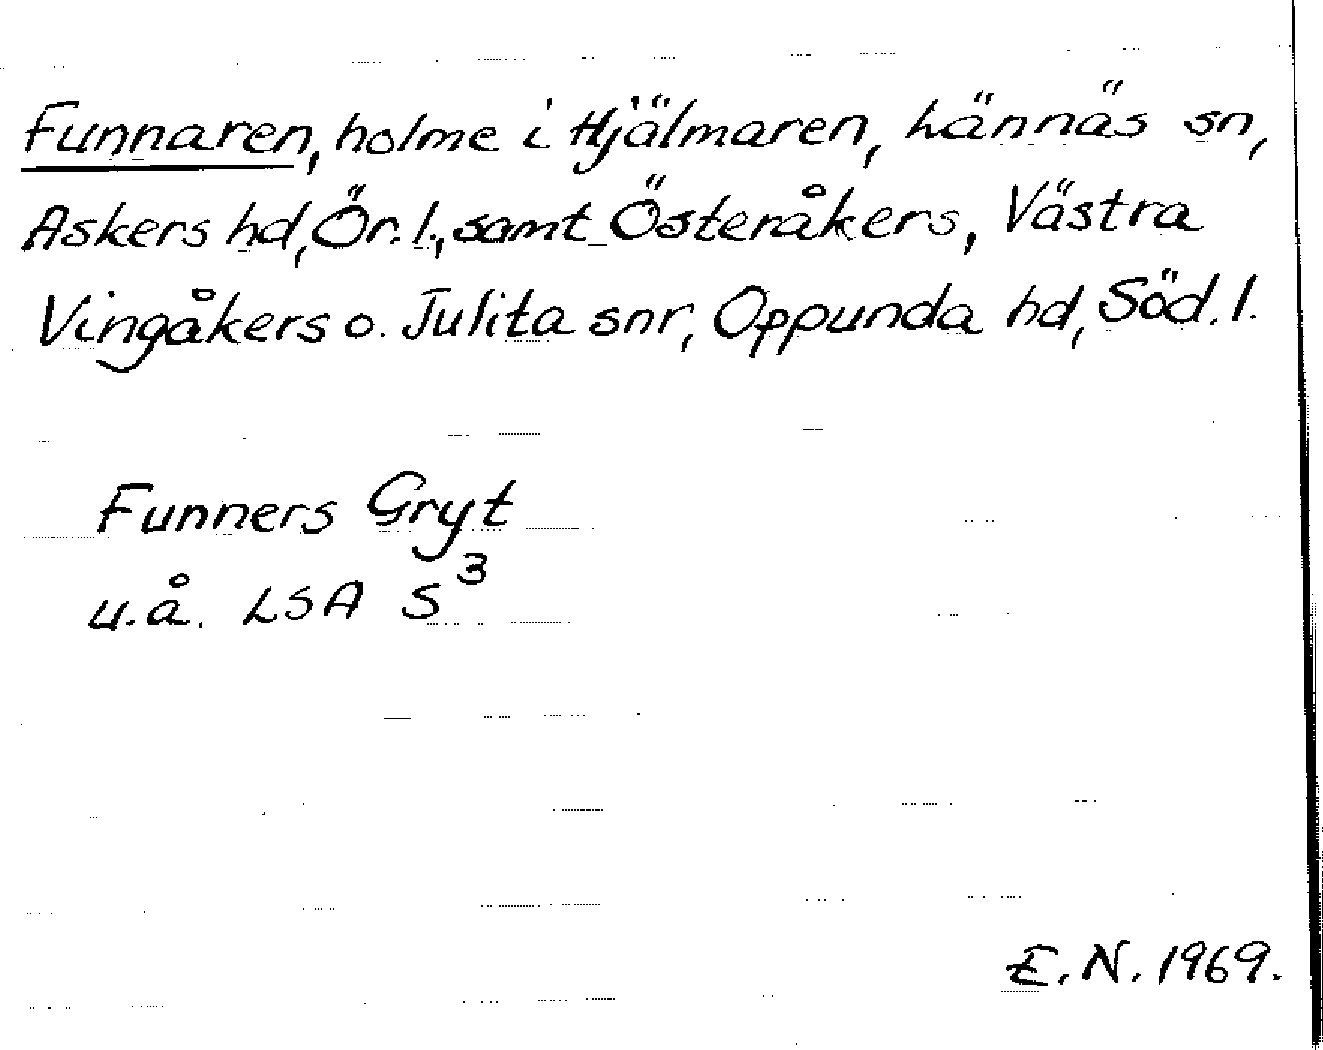 Funnaren, holme i Hjälmaren, Lännäs sn,
Askers hd, Ör. l., samt Österåkers, Västra
Vingåkers o. Julita snr, Oppunda hd, Söd. l.
Funners Gryt
u.å. LSA S³
E.N. 1969.